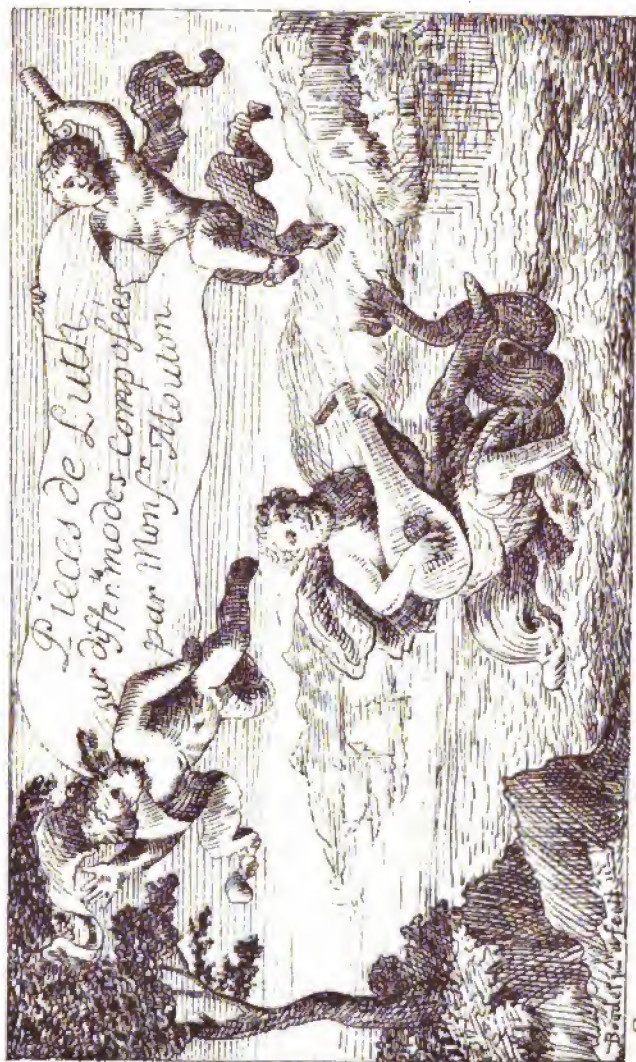 Pieces de Luth
sur differ.ts modes-Compoſées
par Monſ.r Mouton